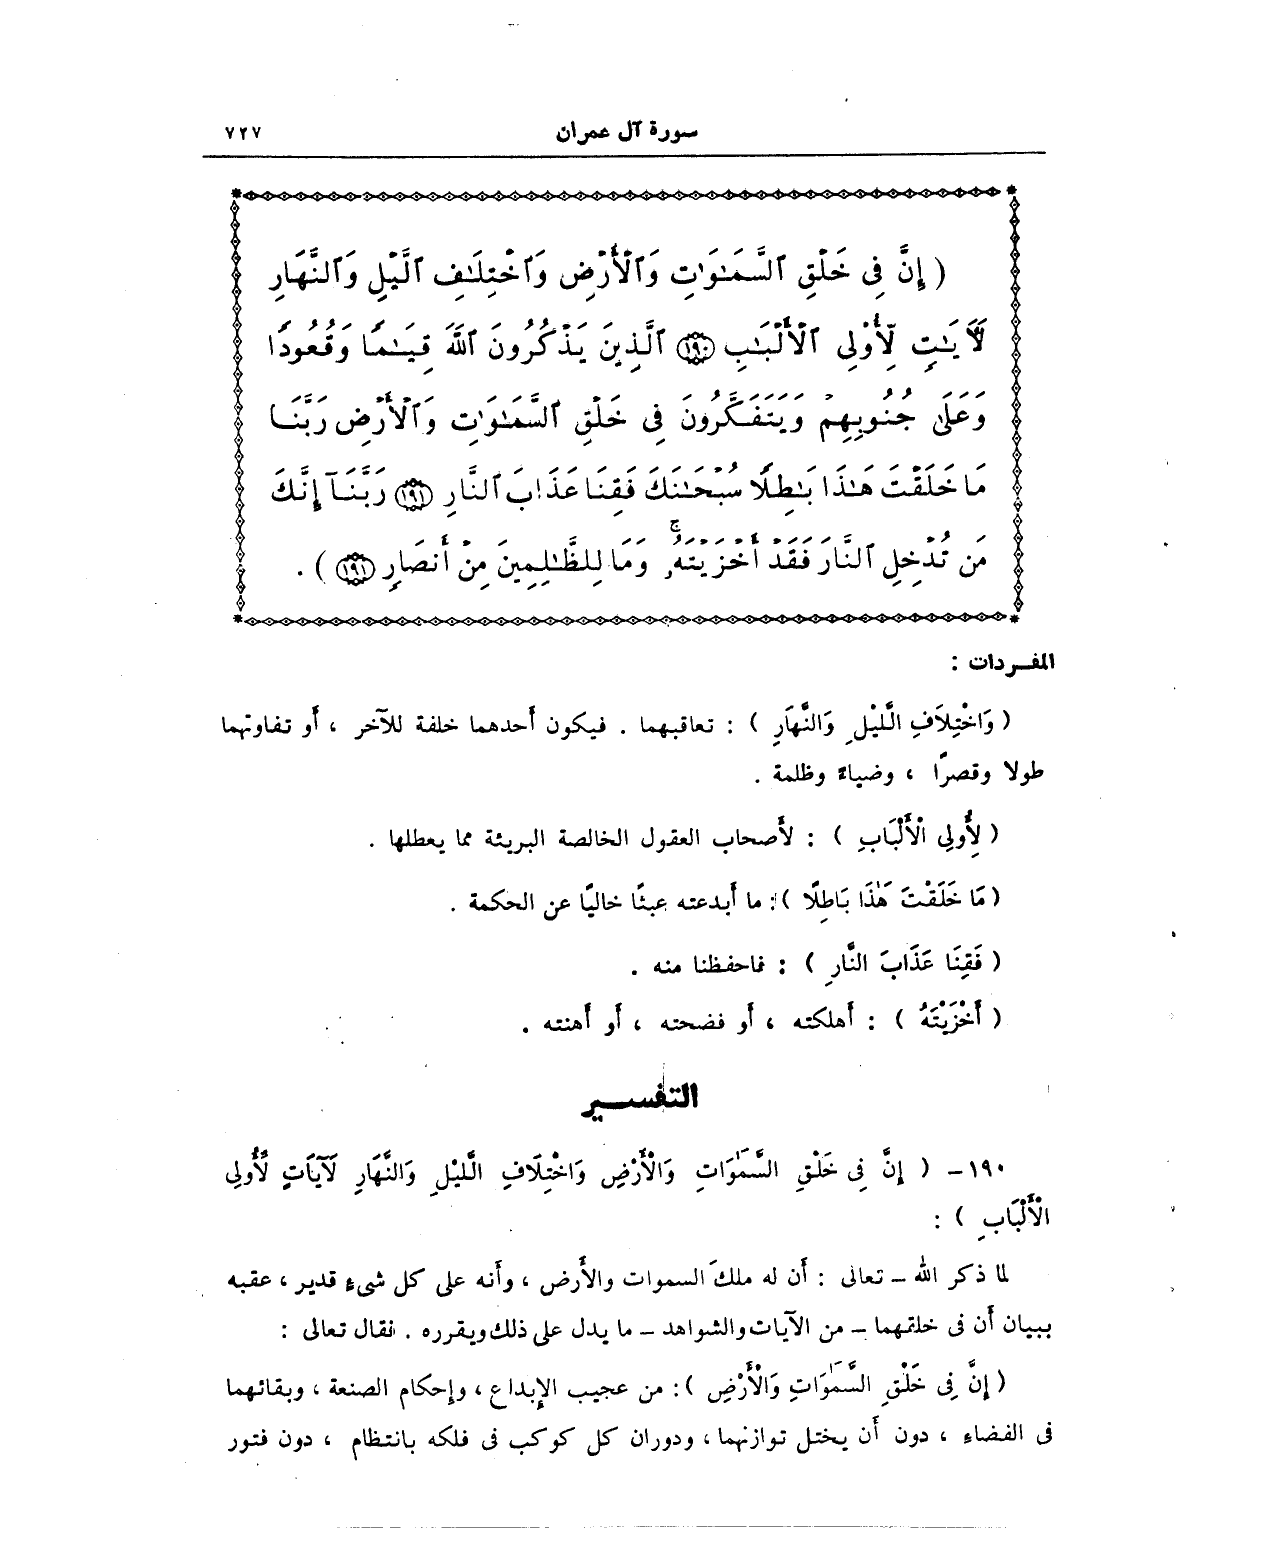 سورة آل عمران ٧٢٧
( إِنَّ فِى خَلْقِ ٱلسَّمَـٰوَٰتِ وَٱلْأَرْضِ وَٱخْتِلَـٰفِ ٱلَّيْلِ وَٱلنَّهَارِ
لَـَٔايَـٰتٍ لِّأُوْلِى ٱلْأَلْبَـٰبِ ﴿١٩٠﴾ ٱلَّذِينَ يَذْكُرُونَ ٱللَّهَ قِيَـٰمًا وَقُعُودًا
وَعَلَىٰ جُنُوبِهِمْ وَيَتَفَكَّرُونَ فِى خَلْقِ ٱلسَّمَـٰوَٰتِ وَٱلْأَرْضِ رَبَّنَا
مَا خَلَقْتَ هَـٰذَا بَـٰطِلًا سُبْحَـٰنَكَ فَقِنَا عَذَابَ ٱلنَّارِ ﴿١٩١﴾ رَبَّنَآ إِنَّكَ
مَن تُدْخِلِ ٱلنَّارَ فَقَدْ أَخْزَيْتَهُۥ ۚ وَمَا لِلظَّـٰلِمِينَ مِنْ أَنصَارٍ ﴿١٩١﴾ ) .
المفـردات :
( وَاخْتِلَافِ الَّليْلِ وَالنَّهَارِ ) : تعاقبهما . فيكون أحدهما خلفة للآخر ، أو تفاوتهما
طولا وقصرًا ، وضياءً وظلمة .
( لِأُولِى الْأَلْبَابِ ) : لأصحاب العقول الخالصة البريئة مما يعطلها .
( مَا خَلَقْتَ هَٰذَا بَاطِلًا ) : ما أبدعته عبثًا خاليًا عن الحكمة .
( فَقِنَا عَذَابَ النَّارِ ) : فاحفظنا منه .
( أَخْزَيْتَهُ ) : أهلكته ، أو فضحته ، أو أهنته .
التفســـير
١٩٠ - ( إِنَّ فِى خَلْقِ السَّمَٰوَاتِ وَالْأَرْضِ وَاخْتِلَافِ الَّليْلِ وَالنَّهَارِ لَآيَاتٍ لِّأُولِى
الْأَلْبَابِ ) :
لما ذكر الله - تعالى : أن له ملكَ السموات والأرض ، وأنه على كل شىءٍ قدير ، عقبه
ببيان أن فى خلقهما - من الآيات والشواهد - ما يدل على ذلك ويقرره . فقال تعالى :
( إِنَّ فِى خَلْقِ السَّمَٰوَاتِ وَالْأَرْضِ ) : من عجيب الإبداع ، وإحكام الصنعة ، وبقائهما
فى الفضاءِ ، دون أن يختل توازنهما ، ودوران كل كوكب فى فلكه بانتظام ، دون فتور